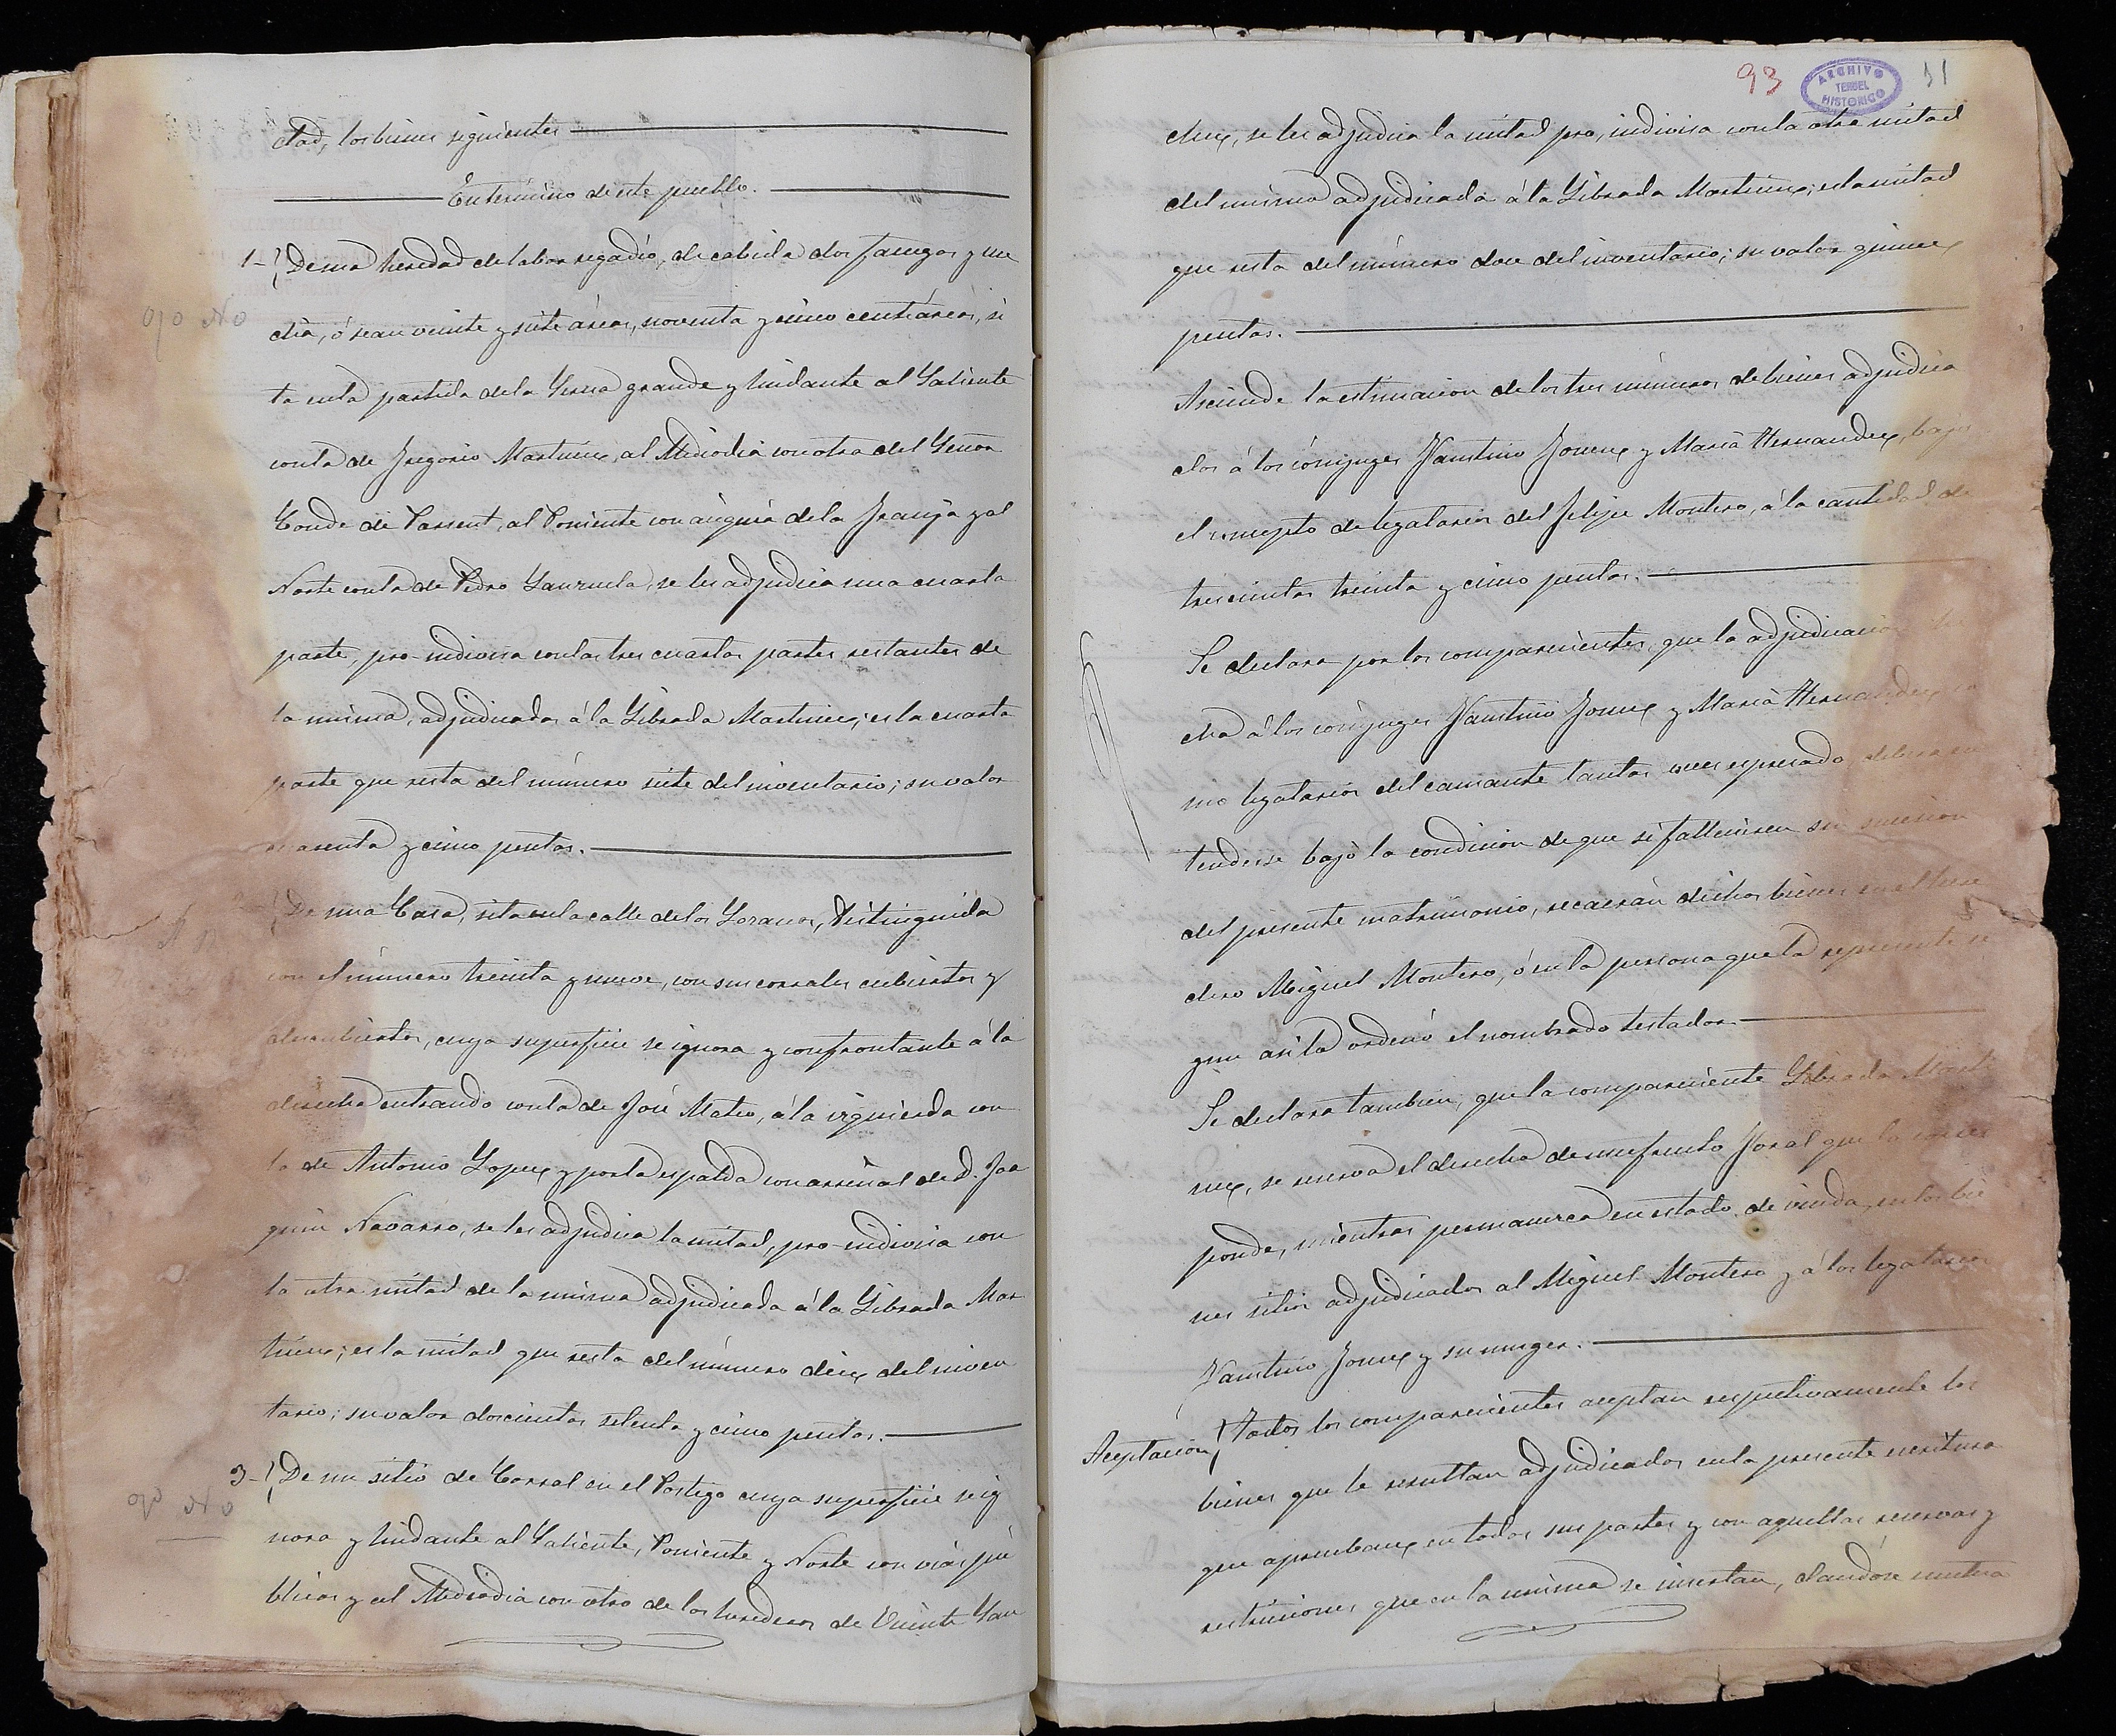 dad, los bienes siguientes
En término de este pueblo.
1-{ De una heredad de labor regadío, de cabida dos fanegas y me
dia, ó sean veinte y siete áreas, noventa y cinco centiáreas, si
ta en la partida de la Serna grande y lindante al Saliente
con la de Gregorio Martinez, al Mediodia con otra del Señor
Conde de Parsent, al Poniente con acéquia de la Granja y al
Norte con la de Pedro Sanzuela, se les adjudica una cuarta
parte, pro-indivisa con las tres cuartas partes restantes de
la misma, adjudicadas á la Librada Martinez; es la cuarta
parte que resta del número siete del inventario; su valor
cuarenta y cinco pesetas.
De una Casa, sita en la calle de los Loranos, distinguida
con el número treinta y nueve, con sus corrales cubiertos y
descubiertos, cuya superficie se ignora y confrontante á la
derecha entrando con la de José Mateo, á la izquierda con
la de Antonio Lopez y por la espalda con arreñal de D. Joa
quin Navarro, se les adjudica la mitad, pro-indivisa con
la otra mitad de la misma adjudicada á la Librada Mar
tinez; es la mitad que resta del número diez del inven
tario; su valor doscientas setenta y cinco pesetas.
3-{ De un sitio de Corral en el Postigo cuya superficie se ig
nora y lindante al Saliente, Poniente y Norte con vias pú
blicas y al Mediodia con otro de los herederos de Vicente San
93
ARCHIVO
TERUEL
HISTORICO
chez, se les adjudica la mitad pro, indivisa con la otra mitad
del mismo adjudicada á la Librada Martinez; es la mitad
que resta del número doce del inventario; su valor quince
pesetas.
Asciende la estimacion de los tres números de bienes adjudica
dos á los cónyuges Faustino Gomez y Maria Hernandez, bajo
el concepto de legatarios del Felipe Montero, á la cantidad de
trescientas treinta y cinco pesetas.
Se declara por los comparecientes, que la adjudicacion
cha á los conyuges Faustino Gomez y Maria Hernandez co
mo legatarios del causante tantas veces espresado, deberá en
tenderse bajo la condicion de que si falleciesen sin sucesion
del presente matrimonio, recaerán dichos bienes en el here
dero Miguel Montero, ó en la persona que la represente se
gun asi la ordenó el nombrado testador.
Se declara tambien, que la compareciente Librada Marti
nez, se reserva el derecho de usufructo foral que la corres
ponde, mientras permanezca en estado de viuda, en los bie
nes sitios adjudicados al Miguel Montero y á los legatarios
Faustino Gomez y su muger.
Aceptacion} Todos los comparecientes aceptan respectivamente los
bienes que le resultan adjudicados en la presente escritura
que aprueban en todas sus partes y con aquellas reservas y
restricciones que en la misma se insertan, dandose mutua